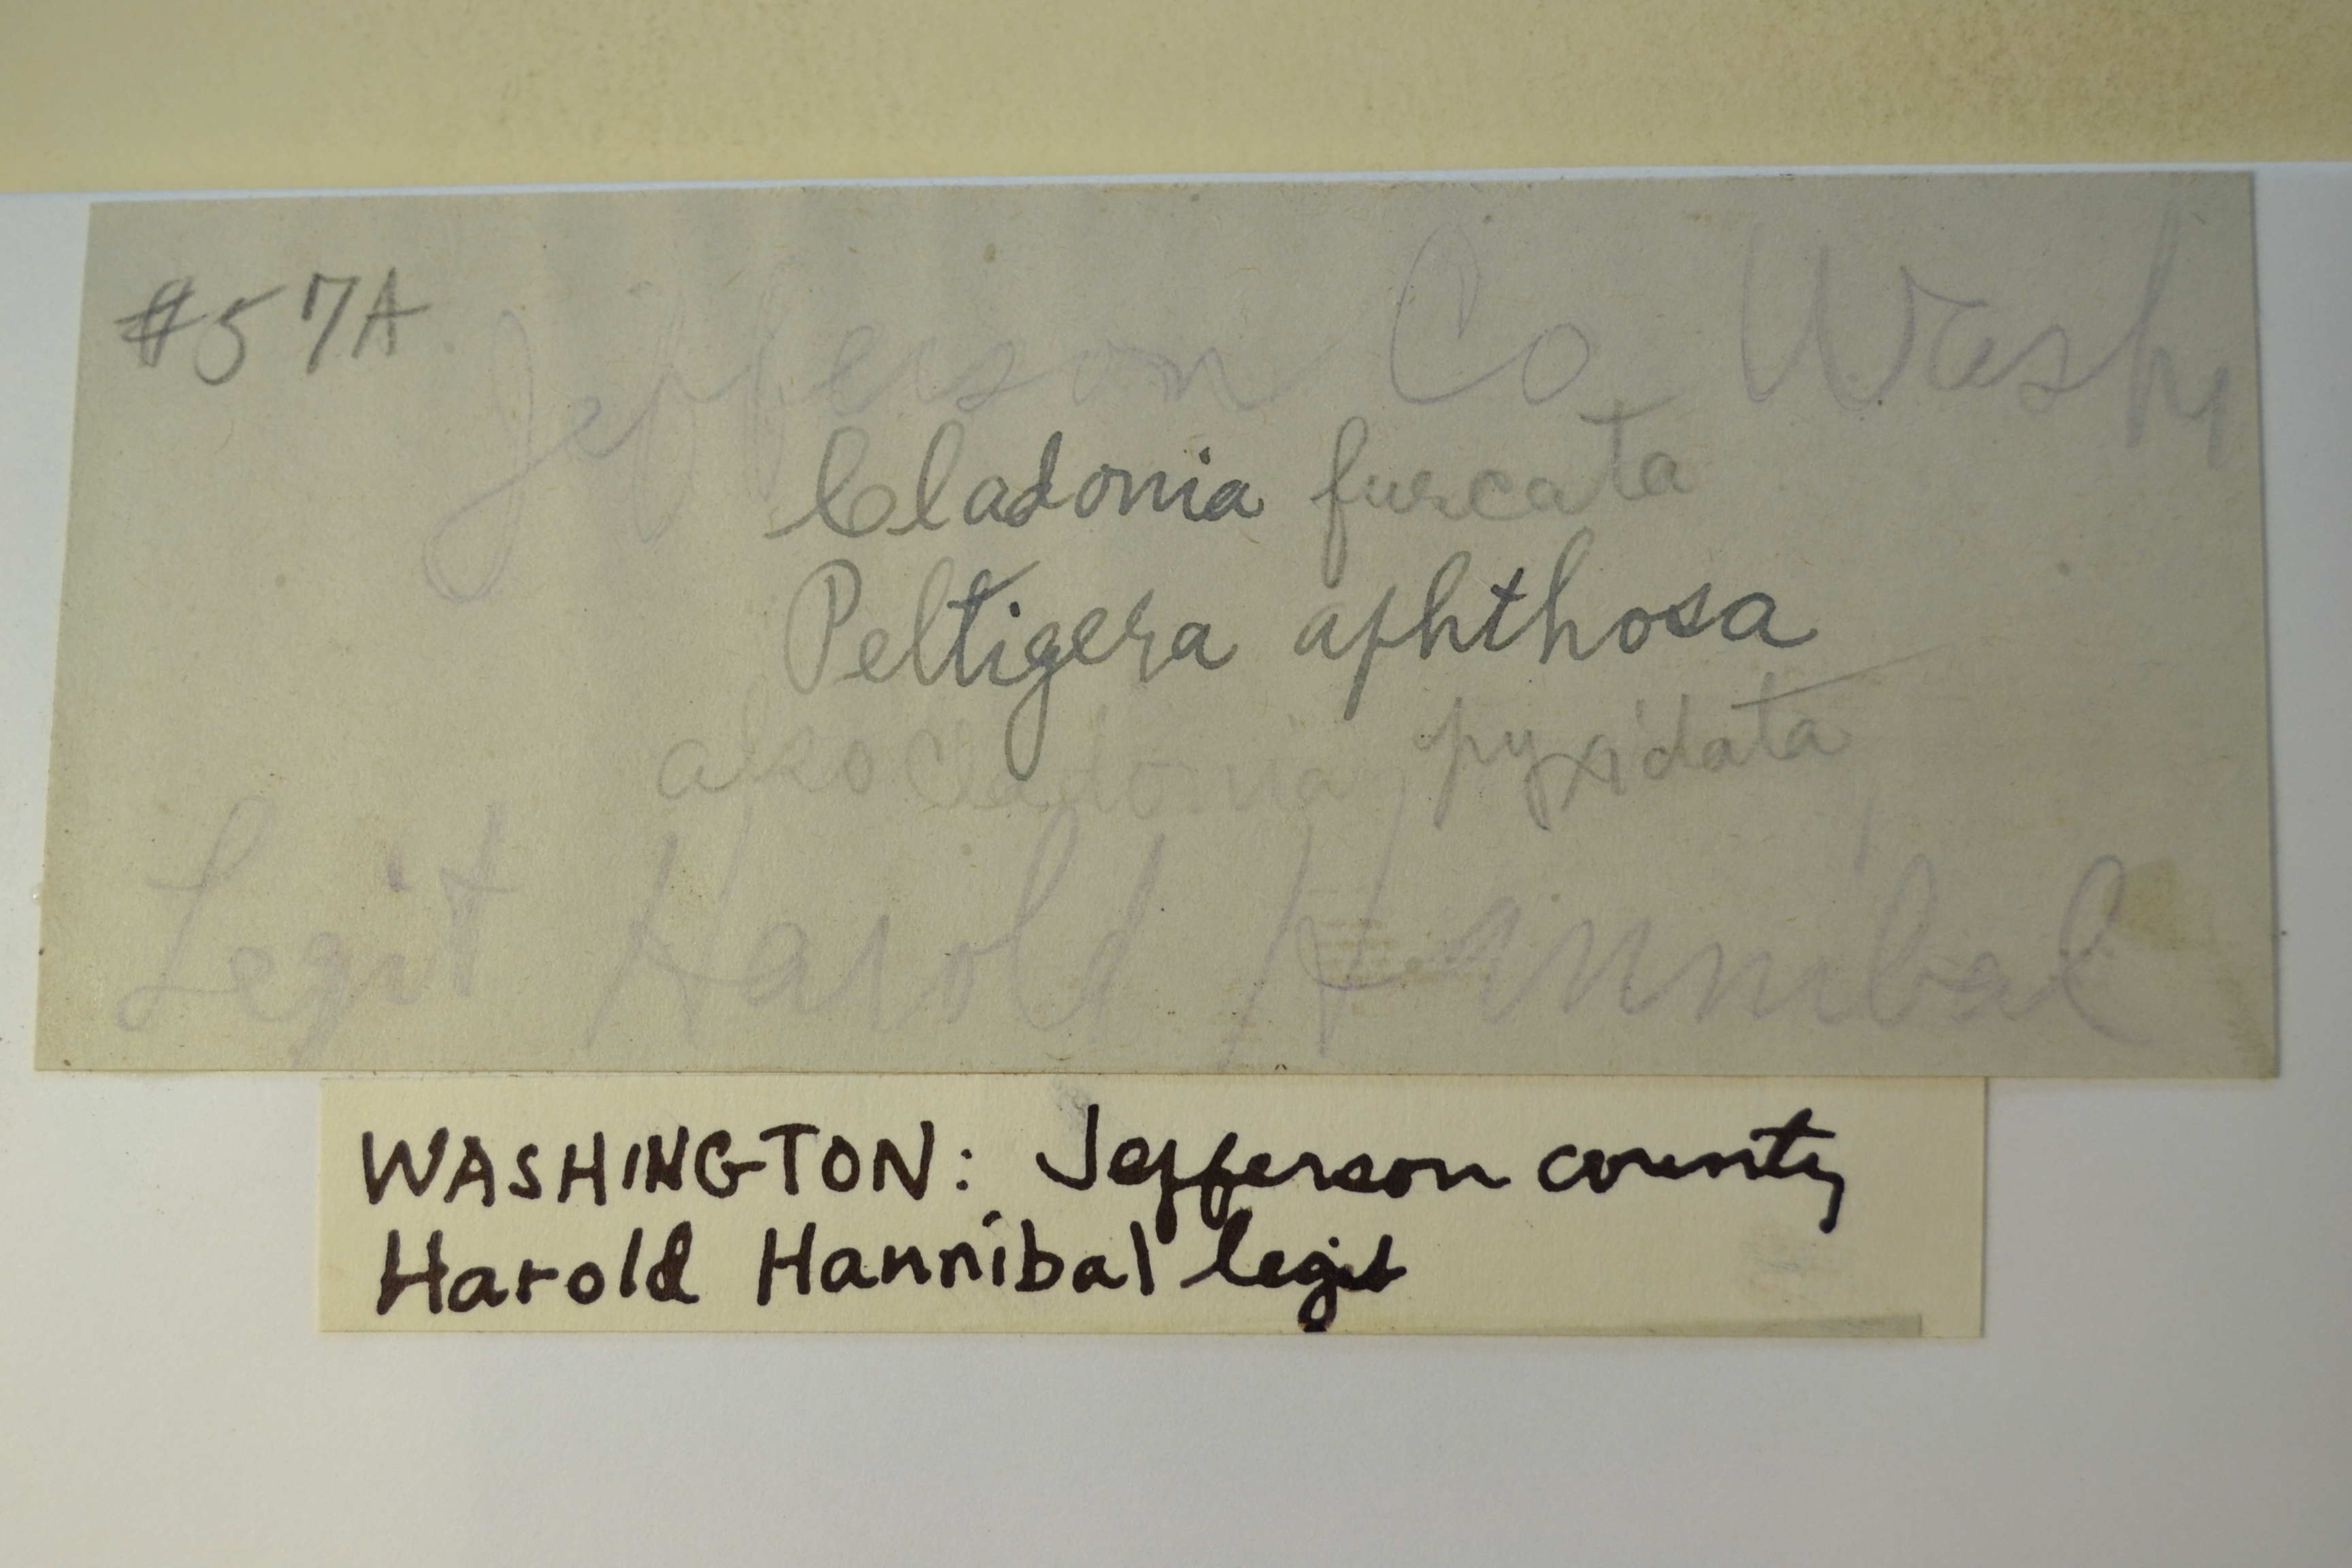 #57A
Jefferson Co Wash,
Cladonia furcata
Peltigera aphthosa
also Cladonia pyxidata
Legit Harold Hannibal
WASHINGTON: Jefferson county
Harold Hannibal legit